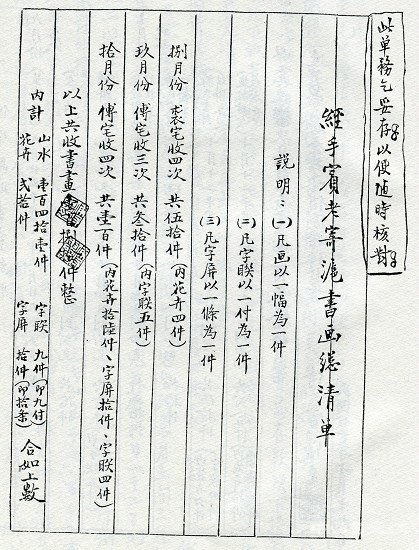 此单務乞妥存以便随時核對
經手賓老寄滬書画總清单
說明：(一)凡画以一幅為一件
(二)凡字联以一付為一件
(三)凡字屏以一條為一件
捌月份 裘宅收四次 共伍拾件(内花卉四件)
玖月份 傅宅收三次 共叁拾件(内字联五件)
拾月份 傅宅收四次 共壹百件(内花卉拾陸件、字屏拾件、字联四件)
以上共收書畫壹百捌拾件整
内計 山水 壹百四拾壹件 字联 九件(即九付)
花卉 弍拾件 字屏 拾件(即拾条) 合如上數